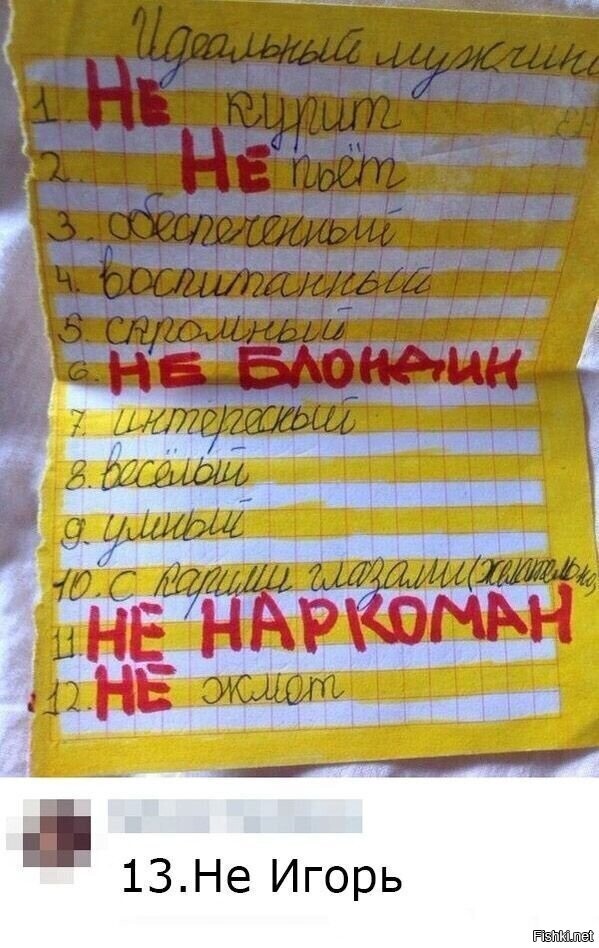 Идеальный мужчина
1. Не курит
2. Не пьёт
3. обеспеченный
4. воспитанный
5. скромный
6. НЕ БЛОНДИН
7. интересный
8. весёлый
9. умный
10. с карими глазами (желательно)
11. НЕ НАРКОМАН
12. НЕ жмот
13.Не Игорь
Fishki.net